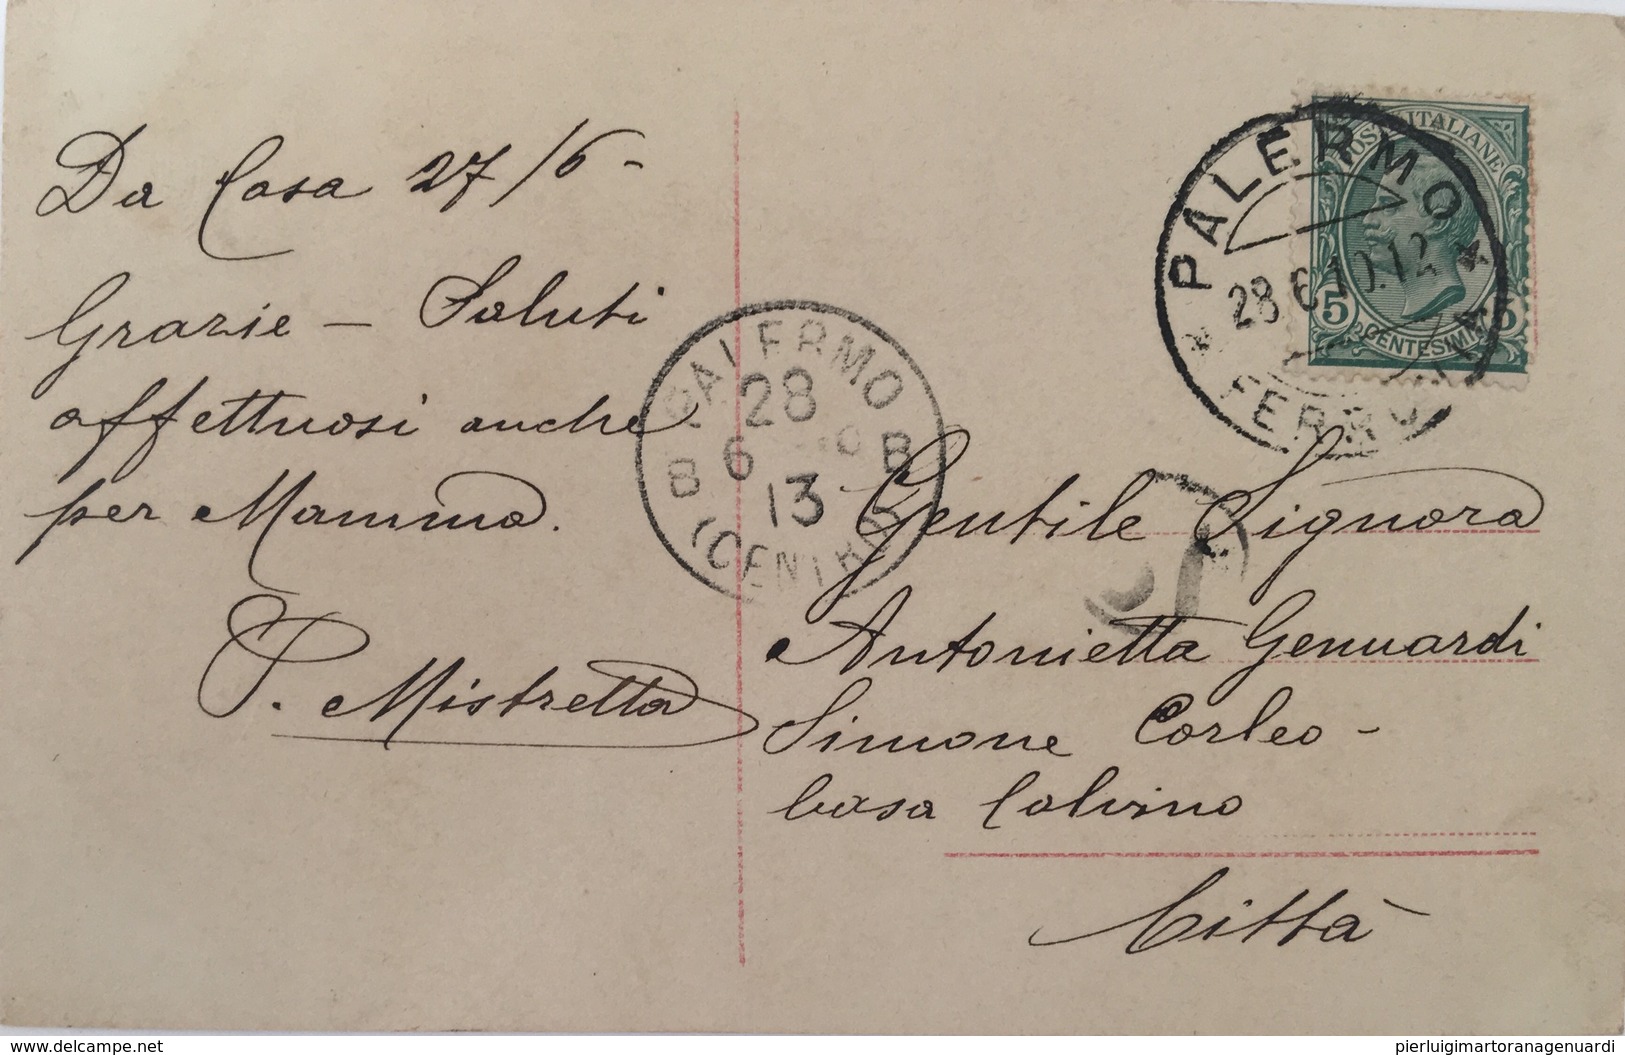 Da Casa 27/6-
Grazie - Saluti
affettuosi anche
per Mamma.
P. Mistretta
PALERMO
28
6 10
B B
13
(CENTRO)
POSTE ITALIANE
5 5
CENTESIMI
PALERMO
28.6.10.12
FERROVIA
Gentile Signora
Antonietta Genuardi
Simone Corleo-
Casa Calvino
Città
www.delcampe.net
pierluigimartoranagenuardi